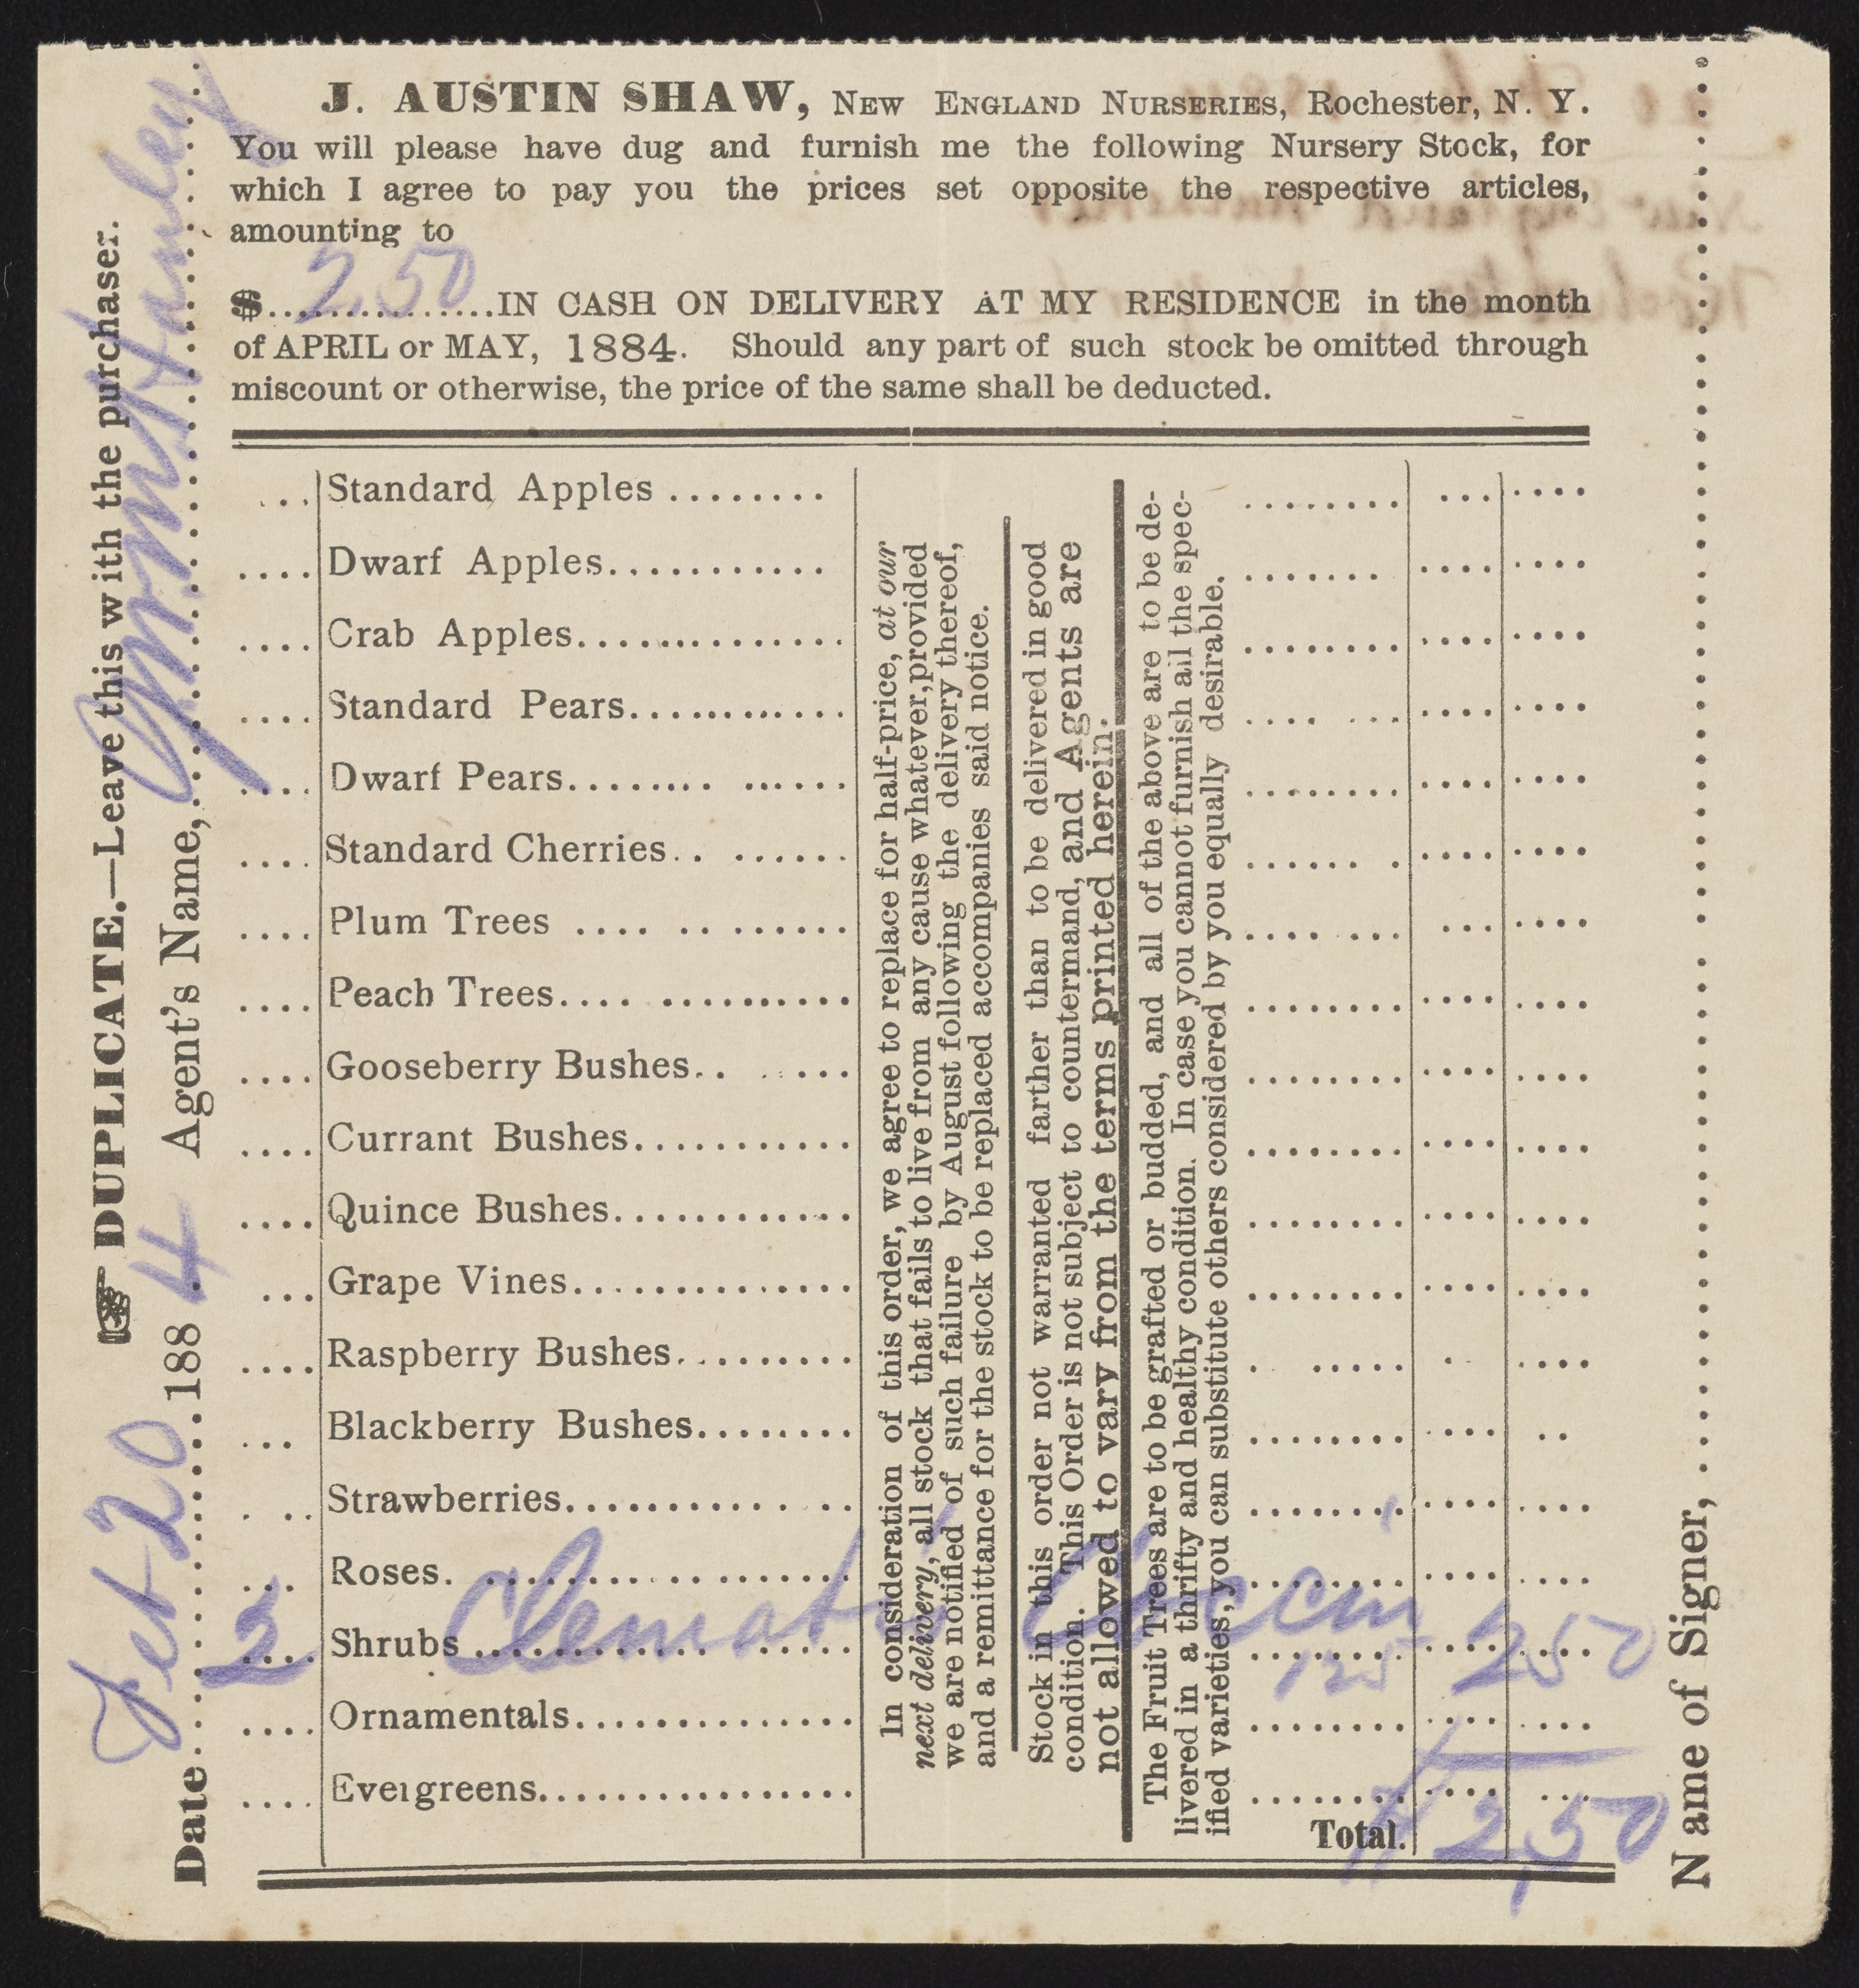 J. AUSTIN SHAW, NEW ENGLAND NURSERIES, Rochester, N. Y.
You will please have dug and furnish me the following Nursery Stock, for
which I agree to pay you the prices set opposite the respective articles,
amounting to
$ 2.50 IN CASH ON DELIVERY AT MY RESIDENCE in the month
of APRIL or MAY, 1884. Should any part of such stock be omitted through
miscount or otherwise, the price of the same shall be deducted.
DUPLICATE.—Leave this with the purchaser.
Date Feb 20 1884 Agent's Name, Hanley
Standard Apples
Dwarf Apples
Crab Apples
Standard Pears
Dwarf Pears
Standard Cherries
Plum Trees
Peach Trees
Gooseberry Bushes
Currant Bushes
Quince Bushes
Grape Vines
Raspberry Bushes
Blackberry Bushes
Strawberries
Roses
2 Shrubs Clematis 125 2 50
Ornamentals
Evergreens
In consideration of this order, we agree to replace for half-price, at our
next delivery, all stock that fails to live from any cause whatever, provided
we are notified of such failure by August following the delivery thereof,
and a remittance for the stock to be replaced accompanies said notice.
Stock in this order not warranted farther than to be delivered in good
condition. This Order is not subject to countermand, and Agents are
not allowed to vary from the terms printed herein.
The Fruit Trees are to be grafted or budded, and all of the above are to be de-
livered in a thrifty and healthy condition. In case you cannot furnish all the spec-
ified varieties, you can substitute others considered by you equally desirable.
Total. $ 2,50
Name of Signer,